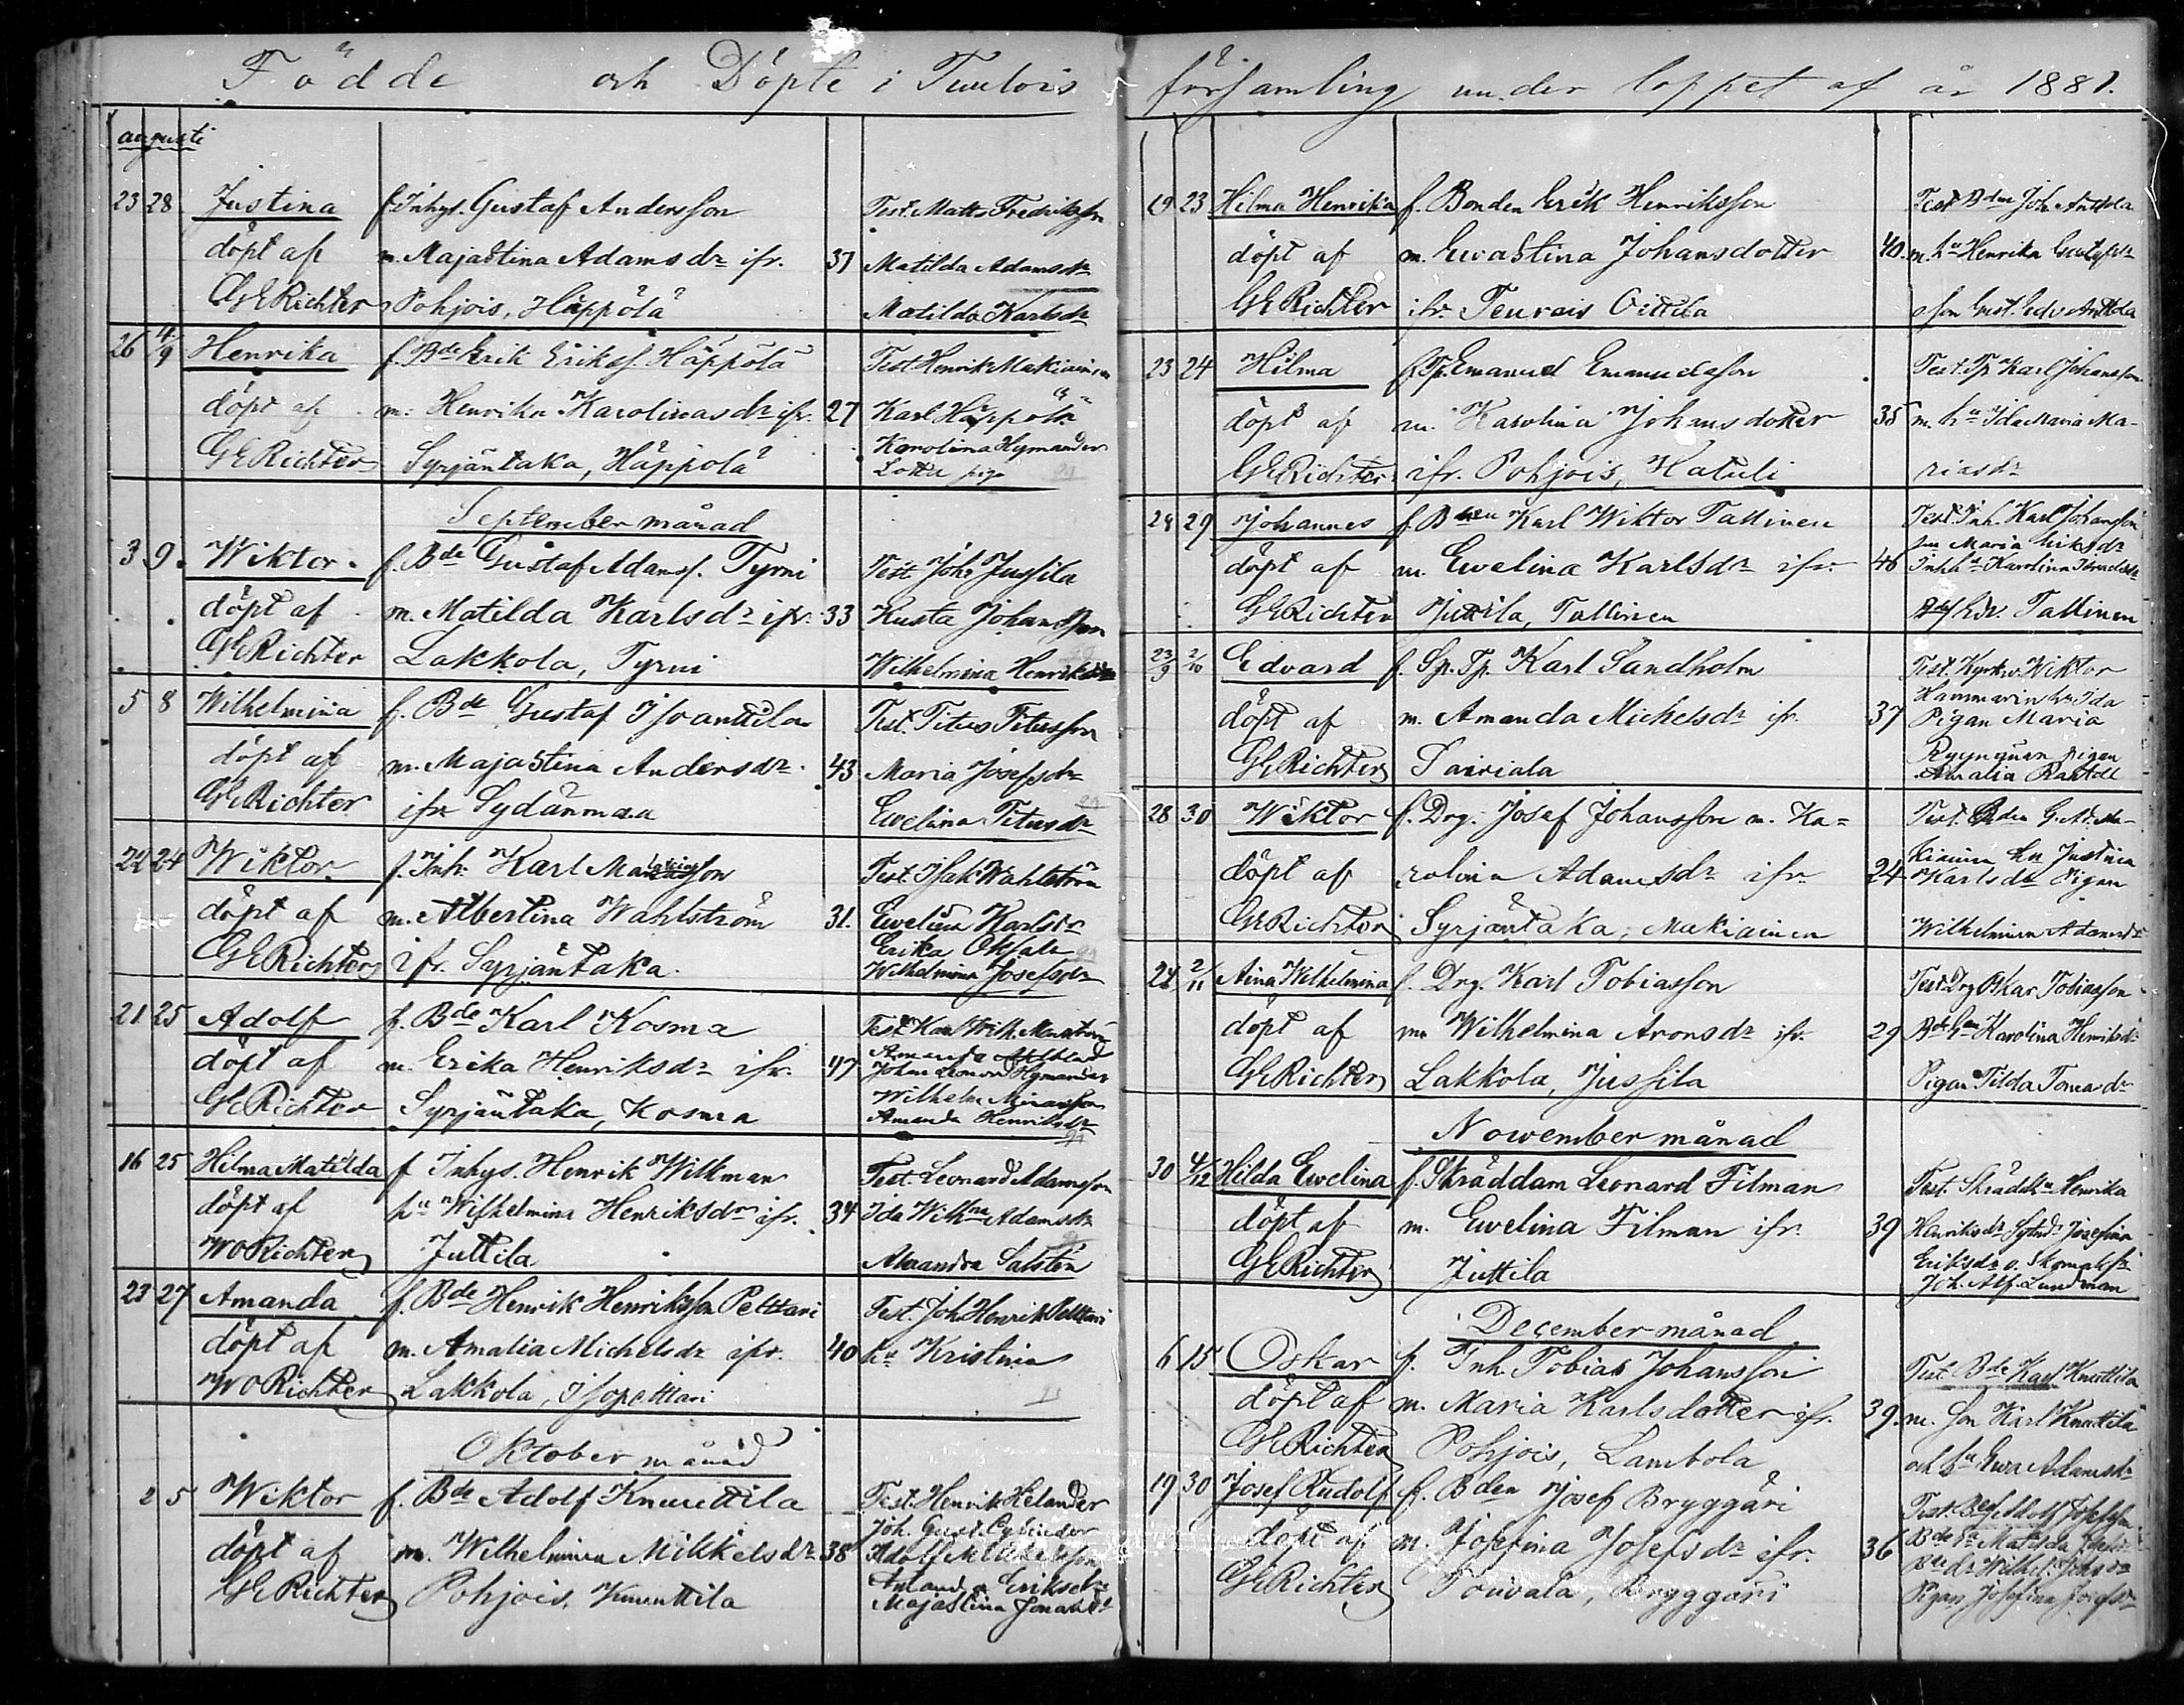 Födde och Döpte i Tuulois församling under loppet af år 1881.
augusti
23 28 Justina f. Inhys. Gustaf Andersson Test. Matts Fredriksson
döpt af m. Majastina Adamsdr ifr. 37 Matilda Adamsdr
GE Richter Pohjois, Häppölä Matilda Karlsdr
26 4/9 Henrika f. Bde Erik Erikss. Häppölä Test Henrik Makiainen
döpt af m. Henrika Karolinasdr ifr. 27 Karl Häppölä
GE Richter Syrjäntaka, Häppölä Karolina Hymander
Lotta piga
September månad
3 9. Wiktor. f. Bde Gustaf Adamss. Tyrni Test. Joh. Jussila
döpt af m. Matilda Karlsdr ifr. 33 Kusta Johansson
GE Richter Lakkola, Tyrni Wilhelmina Henriksdr
5 8 Wilhelmina f. Bde Gustaf Isoanttila Test. Titus Titusson
döpt af m. Majastina Andersdr. 43 Maria Josefsdr
GE Richter ifr Sydänmaa Ewelina Titusdr
22 24 Wiktor f. Inh. Karl Test. Isak Wahlström
döpt af m. Albertina Wahlström 31. Ewelina Karlsdr
GE Richter ifr. Syrjäntaka. Erika
Wilhelmina Josefsdr
21 25 Adolf f. Bde Karl Kosma Test Karl Wilh.
döpt af m. Erika Henriksdr ifr. 47 Amanda
Johan Leonard Hymander
GE Richter Syrjäntaka, Kosma Wilhelm
Amanda Henriksdr
16 25 Hilma Matilda f Inhys. Henrik Wilkman Test. Leonard Adamsson
döpt af hu Wilhelmina Henriksdr ifr. 34 Ida Wilhna Adamsdr
WO Richter Juttila Alexandra Salstén
23 27 Amanda f. Bde Henrik Henriksson Pettari Test. Joh. Henrik Pettari
döpt af m. Amalia Michelsdr ifr. 40 hu Kristina
WO Richter Lakkola, Isopettari
Oktober månad
2 5 Wiktor f. Bde Adolf Knuuttila Test. Henrik Helander
Joh. Gust.
döpt af m. Wilhelmina Mikkelsdr 38 Adolf
GE Richter Pohjois, Knuuttila Amanda Eriksdr
Majastina
19 23 Hilma Henrika f. Bonden Erik Henriksson Test Bden Joh. Anttola
döpt af m. Ewastina Johansdotter 40. m. hu Henrika Gustafsdr
GE Richter ifr. Teurois Oittila o son Gust. Edv. Anttola
23 24 Hilma f. Tp. Emanuel Emanuelsson Test. Tp Karl Johansson
döpt af m. Karolina Johansdotter 35 m. hu Ida Maria Ma-
GE Richter ifr. Pohjois, Hatuli riasdr
24 29 Johannes f. Bden Karl Wiktor Tallinen Test. Inh. Karl Johansson
Maria Eriksdr
döpt af m. Ewelina Karlsdr ifr. 46 Inh. hu Karolina
GE Richter Juttila, Tallinen Tallinen
23/9 2/10 Edvard f. Sp. Tp. Karl Sandholm Test. Kyrkv. Wiktor
Hammarin hu Ida
döpt af m. Amanda Michelsdr ifr. 37 Pigan Maria
GE Richter Sairiala pigan
Amalia
28 30 Wiktor f. Drg. Josef Johansson m. Ka- Test. Bden G. Ad. Ma-
kiainen hu Justina
döpt af rolina Adamsdr ifr. 24 Karlsdr Pigan
GE Richter Syrjäntaka, Makiainen Wilhelmina Adamsdr
24 2/11 Aina Wilhelmina f. Drg. Karl Tobiasson Test Drg Oskar Tobiasson
döpt af m. Wilhelmina Aronsdr ifr. 29 Bde hu Karolina Henriksdr
GE Richter Lakkola, Jussila Pigan Tilda Tomasdr
November månad
30 4/12 Hilda Ewelina f. Skräddarn Leonard Filman Test. Skrädd. hu Henrika
döpt af m. Ewelina Filman ifr. 39 Henriksdr Josefina
GE Richter Juttila Eriksdr o. Skomaks.
Joh. Alf. Lundman
December månad
6 15 Oskar f. Inh. Tobias Johansson Test. Bde Karl Knuttila
döpt af m. Maria Karlsdotter ifr. 39. m. son Karl Knuttila
GE Richter Pohjois, Lambola och hu Ewa Adamsdr
19 30 Josef Rudolf f. Bden Josef Bryggäri Test. Adolf Josefsson
döpt af m. Josefina Josefsdr ifr. 36 Bde hu Matilda
Wilhel.
GE Richter Toivala, Bryggäri Pigan Josefina Josefsdr